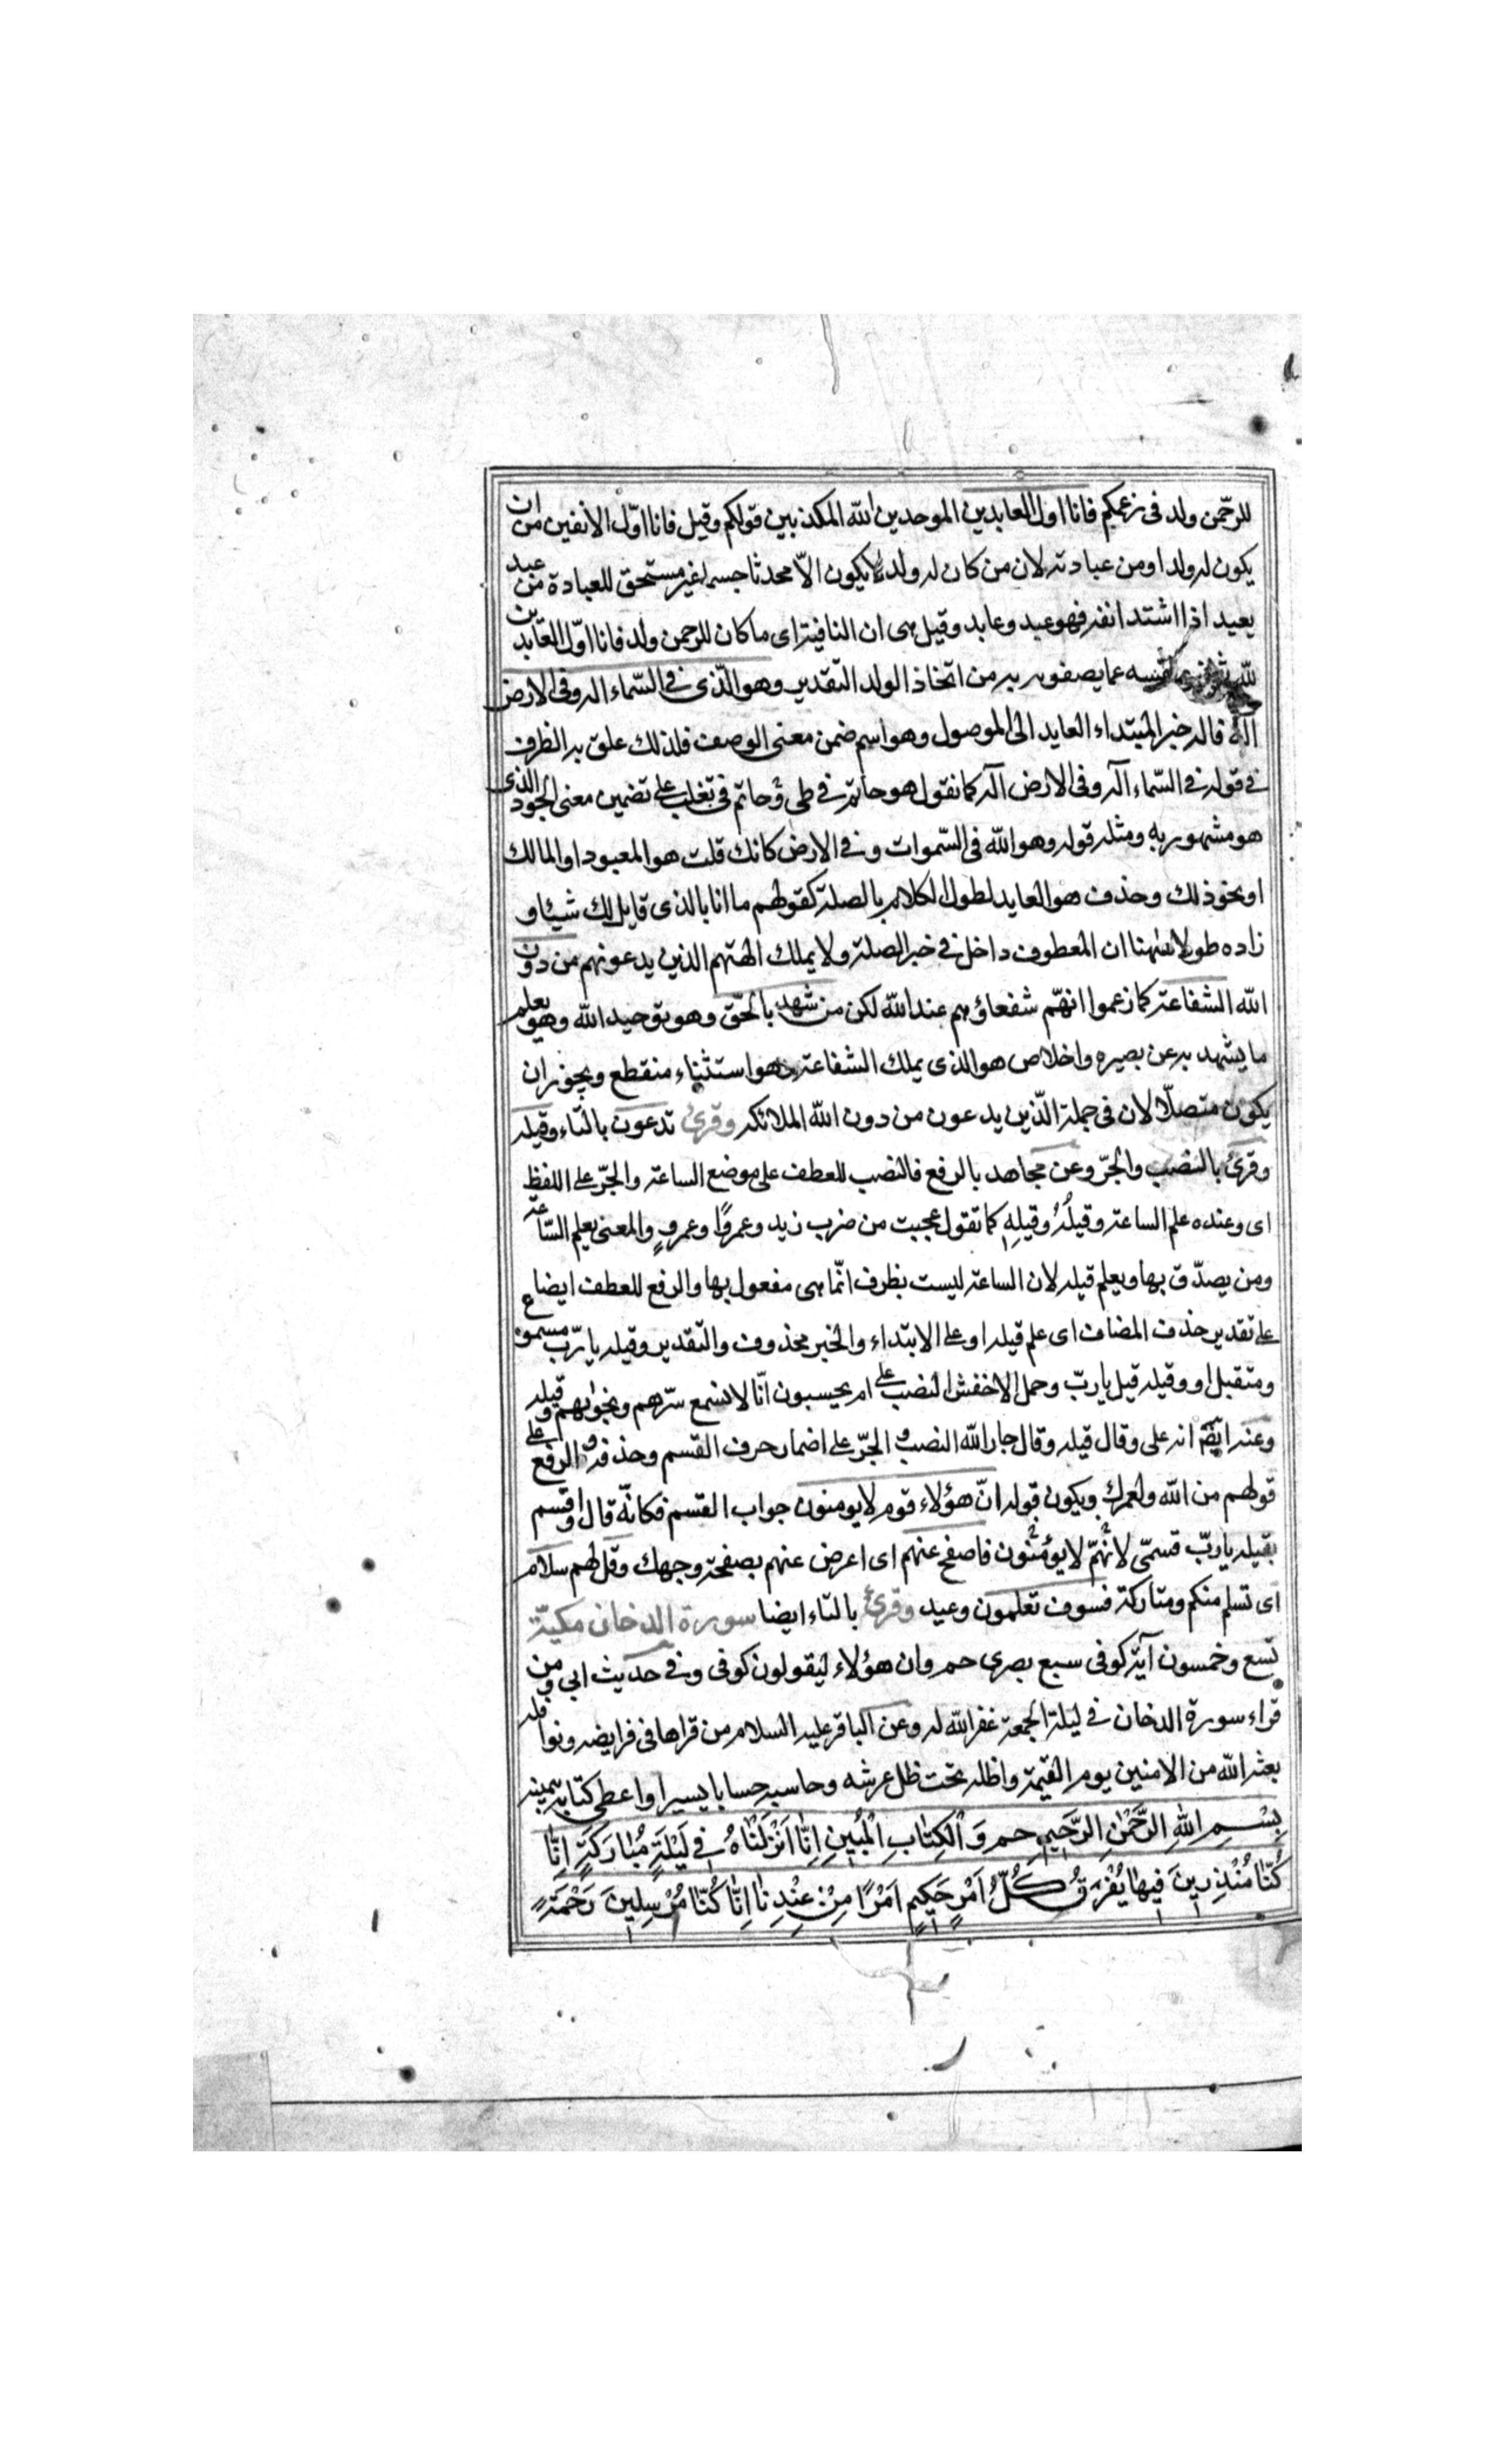 للرحّمن ولد فى زعمكم فانا اول العابدين الموحدين الله المكذبين قولكم وقيل فانا اوّل الآنفين من ان
يكون له ولدا ومن عبادته لان من كان له ولد لا يكون الاّ محدثا جسما غير مستحق للعبادة من عبد
يعبد اذا اشتد انفه فهو عبد وعابد وقيل هى ان النافية اى ما كان للرحمن ولد فانا اوّل العابدين
لله نفسه عما يصفونه به من اتخاذ الولد التقدير وهو الّذى فى السّماء اله وفى الارض
اله فاله خبر المبتداء العايد الى الموصول وهو اسم ضمن معنى الوصف فلذلك علق به الظرف
فى قوله فى السّماء اله وفى الارض اله كما نقول هو حاتم فى طى وحاتم فى تغلب على تضمين معنى الجود الذى
هو مشهور به ومثله قوله وهو الله فى السّموات وفى الارض كانك قلت هو المعبود او المالك
او نحو ذلك وحذف هو العايد لطول الكلام بالصلة كقولهم ما انا بالذى قايل لك شيئا و
زاده طولا ههنا ان المعطوف داخل فى خبر الصلة ولا يملك الهتهم الذين يدعونهم من دون
الله الشفاعة كما زعموا انهّم شفعاؤهم عند الله لكن من شهد بالحّق وهو توحيد الله وهو يعلم
ما يشهد به عن بصيره واخلاص هو الذى يملك الشفاعة وهو استثناء منقطع ويجوز ان
يكون متصلّا لان فى جملة الّذين يدعون من دون الله الملائكه وقرئ تدعون بالتاء وقيله
وقرئ بالنصب والجرّ وعن مجاهد بالرفع فالنصب للعطف على موضع الساعة والجرّ على اللفظ
اى وعنده علم الساعة وقيلُهُ وقيلِهِ كما تقول عجبت من ضرب زيد وعمروًا وعمروٍ والمعنى يعلم السّاعة
ومن يصدّق بها ويعلم قيله لان الساعة ليست بظرف انّما هى مفعول بها والرفع للعطف ايضا ع
على تقدير حذف المضاف اى علم قيله او على الابتداء والخبر محذوف والتقدير وقيله يا ربّ مسموع
ومتقبل او وقيله قيل يا ربّ وحمل الاخفش النصب على ام يحسبون انّا لا نسمع سرّهم ونجوٰيهم وقيله
وعنه ايضّا انه على وقال قيله وقال جار الله النصب و الجرّ على اضمار حرف القسم وحذفه و الرفع على
قولهم من الله ولعمرك ويكون قوله انّ هؤلاء قوم لا يومنون جواب القسم فكانّه قال واقسم
بقيله يا ربّ قسمى لانهّم لا يؤمنون فاصفح عنهم اى اعرض عنهم بصفحة وجهك وقل لهم سلام
اى تسلم منكم ومتاركة فسوف تعلمون وعيد وقرئ بالتاء ايضا سورة الدخان مكيّة
تسع وخمسون آية كوفى سبع بصرى حم وان هؤلاء ليقولون كوفى وفى حديث ابى ومن
قراء سورة الدخان فى ليلة الجمعة غفر الله له وعن الباقر عليه السلام من قراها فى فرايضه ونوافله
بعثه الله من الامنين يوم القيمة واظله تحت ظل عرشه وحاسبه حسابا يسيرا واعطى كتابه بيمينه
بِسْمِ اللهِ الرَّحْمٰنِ الرَّحَيمِ حم وَالْكِتٰابِ الْمُبينِ اِنّٰا اَنْزَلْنٰاهُ فِى لَيْلَةٍ مُبٰارَكَةٍ اِنّٰا
كُنّٰا مُنْذِرينَ فيهٰا يُفْرَقُ كُلُّ اَمْرٍ حَكيمٍ اَمْرًا مِنْ عِنْدِنٰا اِنّٰا كُنّٰا مُرْسِلينَ رَحْمَةً